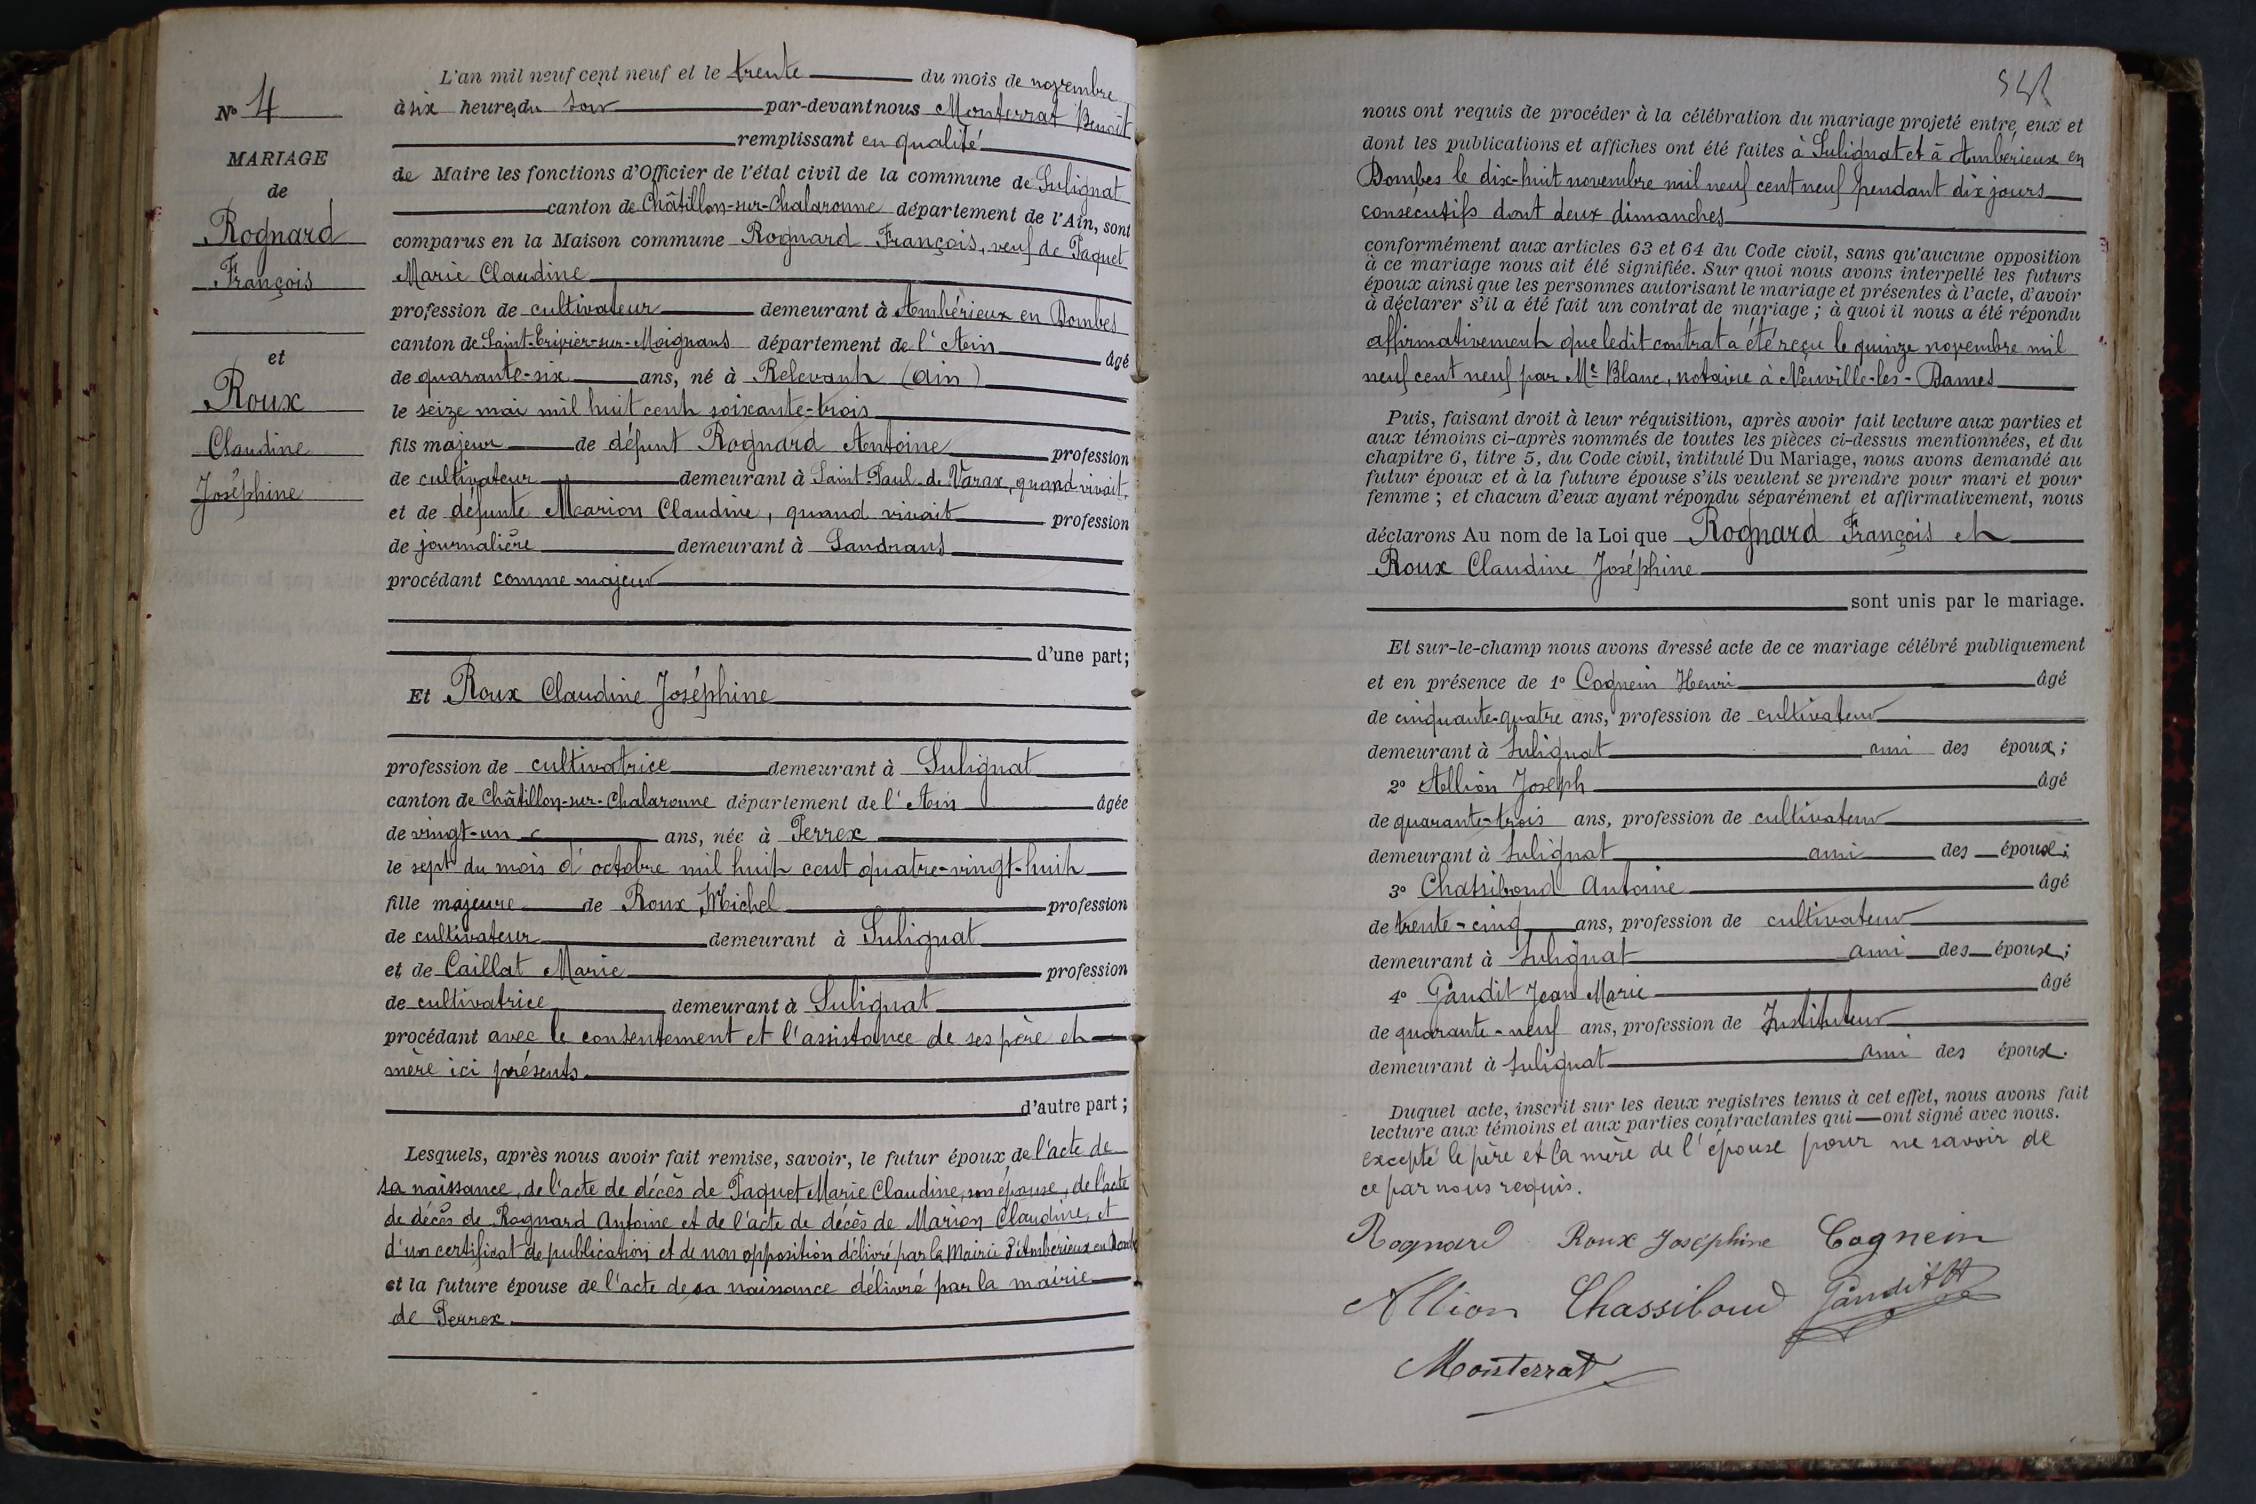 L'an mil neuf cent neuf et le trente du mois de novembre
à six heures du soir par-devant nous Monterrat Benoît
remplissant en qualité
de Maire les fonctions d'Officier de l'état civil de la commune de Sulignat
canton de Châtillon-sur-Chalaronne département de l'Ain, sont
comparus en la Maison commune Rognard François, veuf de Paquet
Marie Claudine
profession de cultivateur demeurant à Ambérieux en Dombes
canton de Saint-Trivier-sur-Moignans département de l'Ain âgé
de quarante-six ans, né à Relevant (Ain)
le seize mai mil huit cent soixante-trois
fils majeur de défunt Rognard Antoine profession
de cultivateur demeurant à Saint-Paul-de Varax, quand vivait,
et de défunte Marion Claudine, quand vivait profession
de journalière demeurant à Sandrans
procédant comme majeur
d'une part;
Et Roux Claudine Joséphine
profession de cultivatrice demeurant à Sulignat
canton de Châtillon-sur-Chalaronne département de l'Ain âgée
de vingt-un ans, née à Perrex
le sept du mois d'octobre mil huit cent quatre-vingt-huit
fille majeure de Roux Michel profession
de cultivateur demeurant à Sulignat
et de Caillat Marie profession
de cultivatrice demeurant à Sulignat
procédant avec le consentement et l'assistance de ses père et
mère ici présents
d'autre part;
Lesquels, après nous avoir fait remise, savoir, le futur époux de l'acte de
sa naissance, de l'acte de décès de Paquet Marie Claudine, son épouse, de l'acte
de décès de Rognard Antoine et de l'acte de décès de Marion Claudine, et
d'un certificat de publication et de non opposition délivré par la Mairie d'Ambérieux en Dombes
et la future épouse de l'acte de sa naissance délivré par la mairie
de Perrex.
N° 4
MARIAGE
de
Rognard
François
et
Roux
Claudine
Joséphine
nous ont requis de procéder à la célébration du mariage projeté entre eux et
dont les publications et affiches ont été faites à Sulignat et à Ambérieux en
Dombes le dix-huit novembre mil neuf cent neuf pendant dix jours
consécutifs dont deux dimanches
conformément aux articles 63 et 64 du Code civil, sans qu'aucune opposition
à ce mariage nous ait été signifiée. Sur quoi nous avons interpellé les futurs
époux ainsi que les personnes autorisant le mariage et présentes à l'acte, d'avoir
à déclarer s'il a été fait un contrat de mariage; à quoi il nous a été répondu
affirmativement que ledit contrat a été reçu le quinze novembre mil
neuf cent neuf par Me Blanc, notaire à Neuville-les-Dames
Puis, faisant droit à leur réquisition, après avoir fait lecture aux parties et
aux témoins ci-après nommés de toutes les pièces ci-dessus mentionnées, et du
chapitre 6, titre 5, du Code civil, intitulé Du Mariage, nous avons demandé au
futur époux et à la future épouse s'ils veulent se prendre pour mari et pour
femme; et chacun d'eux ayant répondu séparément et affirmativement, nous
déclarons Au nom de la Loi que Rognard François et
Roux Claudine Joséphine
sont unis par le mariage.
Et sur-le-champ nous avons dressé acte de ce mariage célébré publiquement
et en présence de 1° Cognein Henri âgé
de cinquante-quatre ans, profession de cultivateur
demeurant à Sulignat ami des époux;
2° Allion Joseph âgé
de quarante-trois ans, profession de cultivateur
demeurant à Sulignat ami des époux;
3° Chassiboud Antoine âgé
de trente-cinq ans, profession de cultivateur
demeurant à Sulignat ami des époux;
4° Gaudit Jean Marie âgé
de quarante-neuf ans, profession de Instituteur
demeurant à Sulignat ami des époux.
Duquel acte, inscrit sur les deux registres tenus à cet effet, nous avons fait
lecture aux témoins et aux parties contractantes qui ont signé avec nous.
excepté le père et la mère de l'épouse pour ne savoir de
ce par nous requis.
Rognard Roux Joséphine Cognein
Allion Chassiboud Gaudit
Monterrat